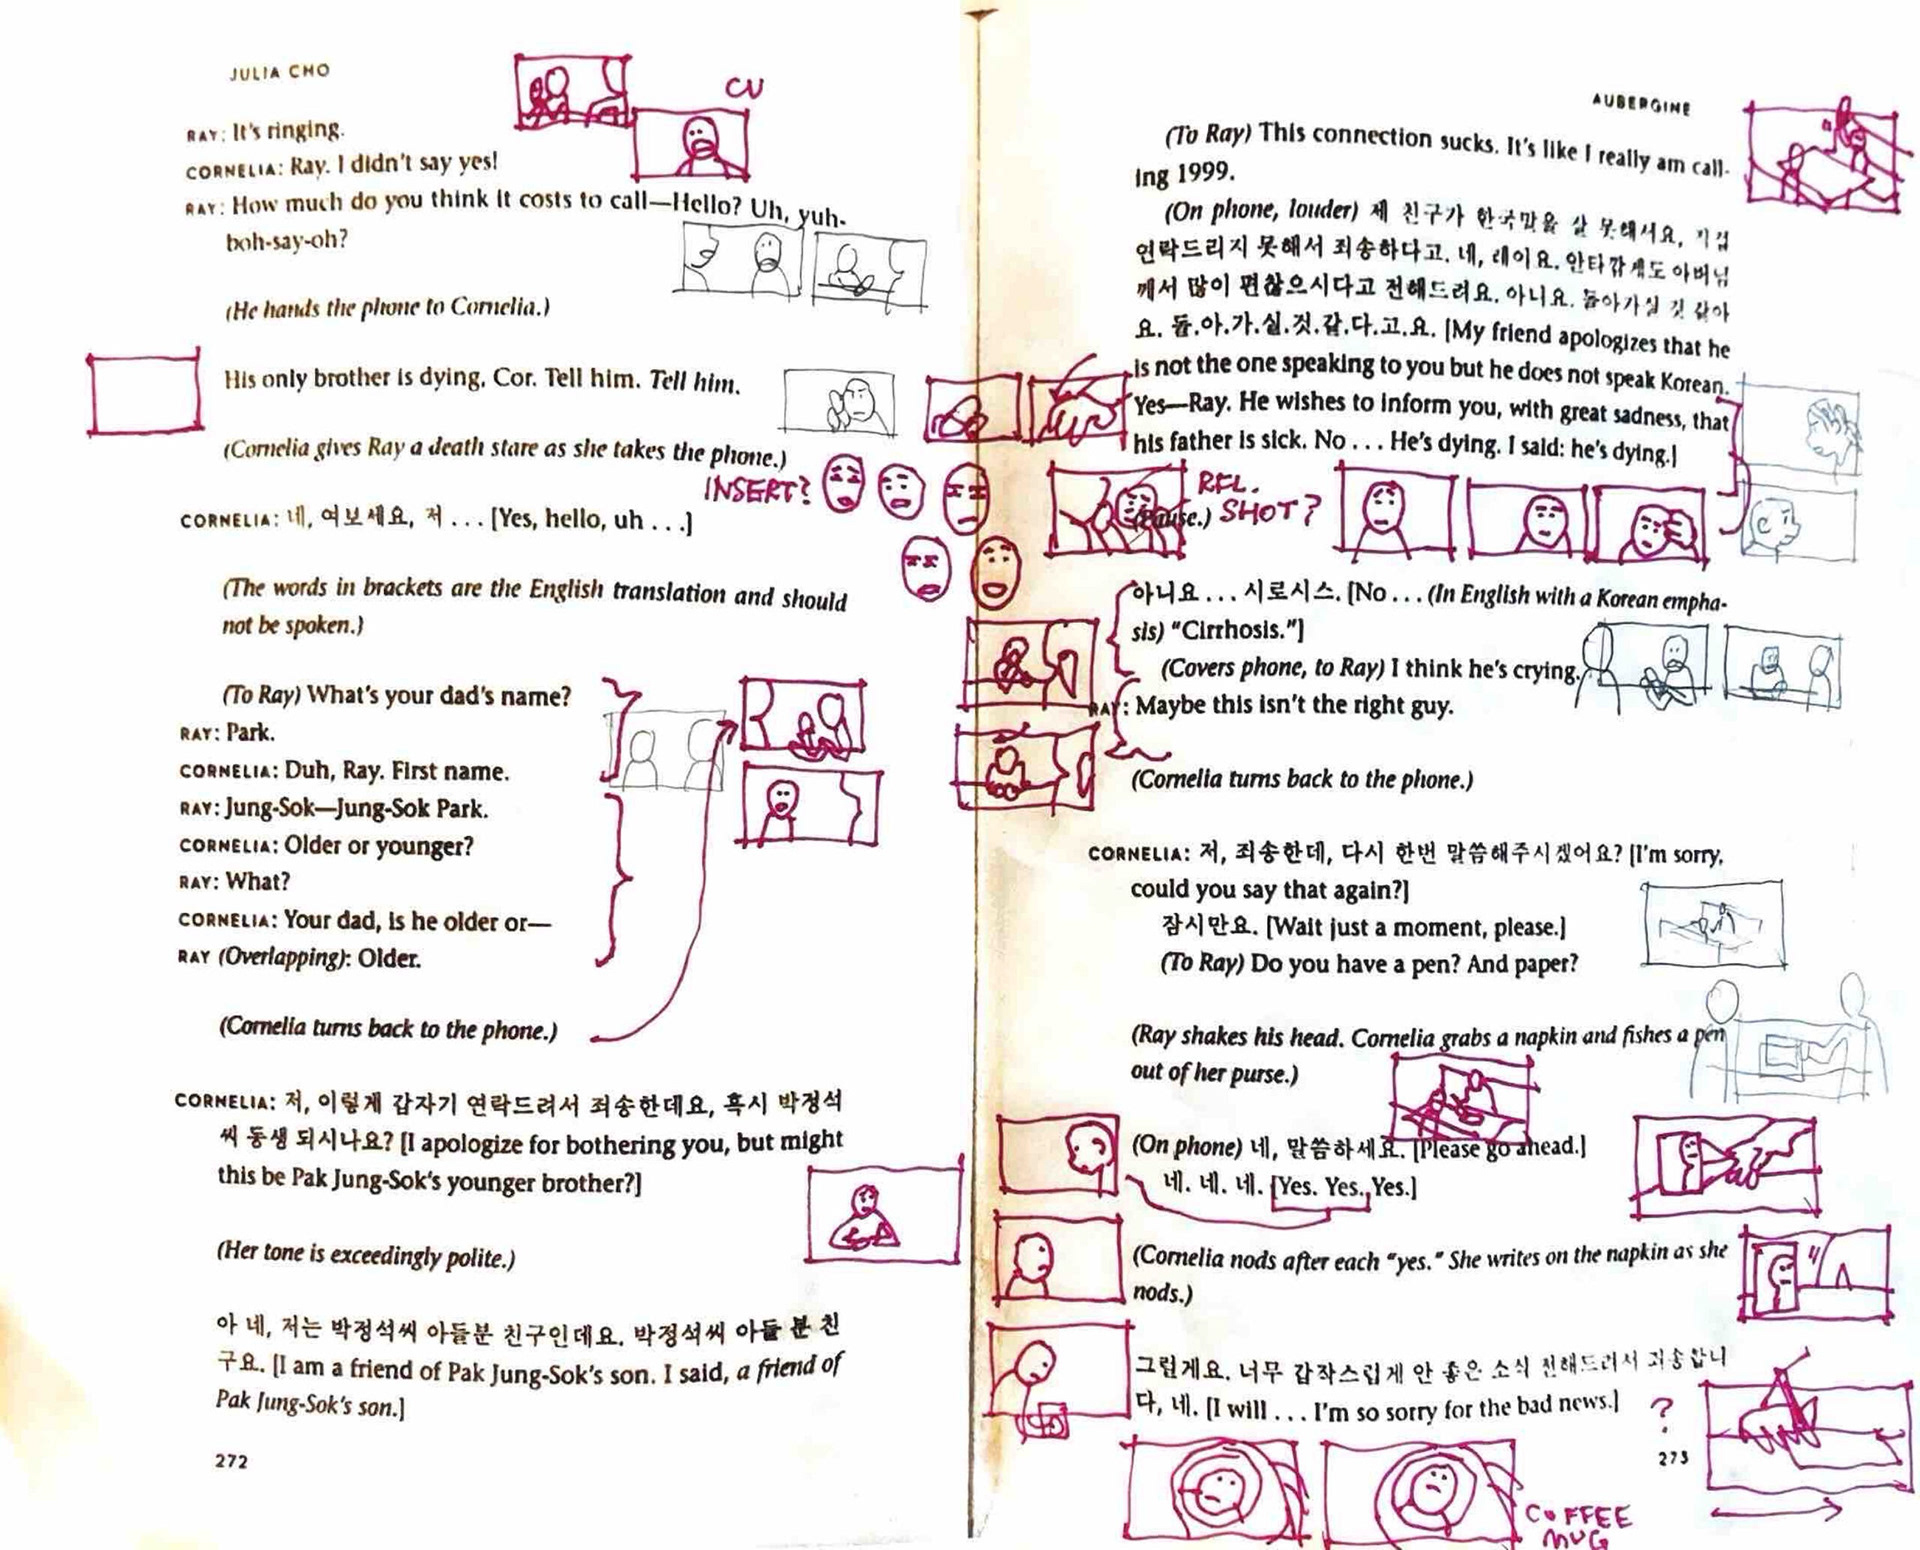 JULIA CHO
CU
RAY: It's ringing.
CORNELIA: Ray. I didn't say yes!
RAY: How much do you think it costs to call—Hello? Uh, yuh-
boh-say-oh?
(He hands the phone to Cornelia.)
His only brother is dying, Cor. Tell him. Tell him.
(Cornelia gives Ray a death stare as she takes the phone.)
INSERT?
CORNELIA: 네, 여보세요, 저 . . . [Yes, hello, uh . . .]
(The words in brackets are the English translation and should
not be spoken.)
(To Ray) What's your dad's name?
RAY: Park.
CORNELIA: Duh, Ray. First name.
RAY: Jung-Sok—Jung-Sok Park.
CORNELIA: Older or younger?
RAY: What?
CORNELIA: Your dad, is he older or—
RAY (Overlapping): Older.
(Cornelia turns back to the phone.)
CORNELIA: 저, 이렇게 갑자기 연락드려서 죄송한데요, 혹시 박정석
씨 동생 되시나요? [I apologize for bothering you, but might
this be Pak Jung-Sok's younger brother?]
(Her tone is exceedingly polite.)
아 네, 저는 박정석씨 아들분 친구인데요. 박정석씨 아들 분 친
구요. [I am a friend of Pak Jung-Sok's son. I said, a friend of
Pak Jung-Sok's son.]
272
AUBERGINE
(To Ray) This connection sucks. It's like I really am call-
ing 1999.
(On phone, louder)제 친구가 한국말을 잘 못해서요, 직접
연락드리지 못해서 죄송하다고. 네, 레이요. 안타깝게도 아버님
께서 많이 편찮으시다고 전해드려요. 아니요. 돌아가실 것 같아
요. 돌.아.가.실.것.같.다.고.요. [My friend apologizes that he
is not the one speaking to you but he does not speak Korean.
Yes—Ray. He wishes to inform you, with great sadness, that
his father is sick. No . . . He's dying. I said: he's dying.]
RFL.
(Pause.) SHOT?
아니요 . . . 시로시스. [No . . . (In English with a Korean empha-
sis) "Cirrhosis."]
(Covers phone, to Ray) I think he's crying.
RAY: Maybe this isn't the right guy.
(Cornelia turns back to the phone.)
CORNELIA: 저, 죄송한데, 다시 한번 말씀해주시겠어요? [I'm sorry,
could you say that again?]
잠시만요. [Wait just a moment, please.]
(To Ray) Do you have a pen? And paper?
(Ray shakes his head. Cornelia grabs a napkin and fishes a pen
out of her purse.)
(On phone) 네, 말씀하세요. [Please go ahead.]
네. 네. 네. [Yes. Yes. Yes.]
(Cornelia nods after each "yes." She writes on the napkin as she
nods.)
그럴게요. 너무 갑작스럽게 안 좋은 소식 전해드려서 죄송합니
다, 네. [I will . . . I'm so sorry for the bad news.]
?
273
COFFEE
MUG